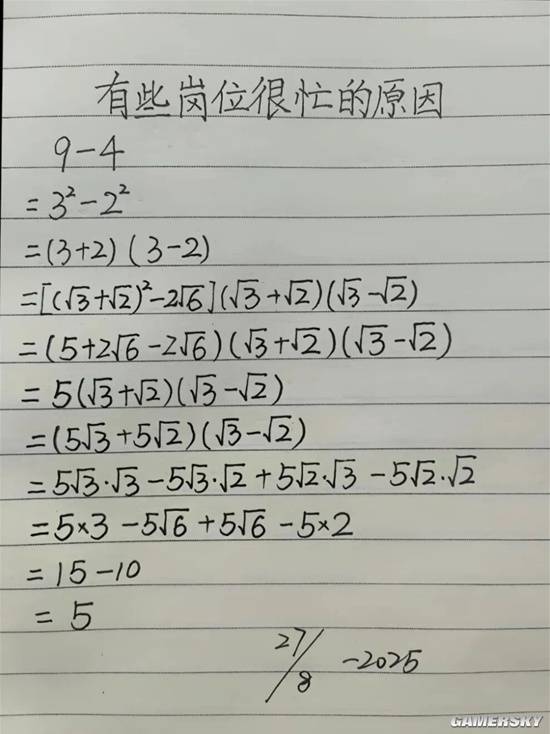 有些岗位很忙的原因
9-4
=3²-2²
=(3+2)(3-2)
=[(√3+√2)²-2√6](√3+√2)(√3-√2)
=(5+2√6-2√6)(√3+√2)(√3-√2)
=5(√3+√2)(√3-√2)
=(5√3+5√2)(√3-√2)
=5√3·√3-5√3·√2+5√2·√3-5√2·√2
=5×3-5√6+5√6-5×2
=15-10
=5
27/8-2025
GAMERSKY